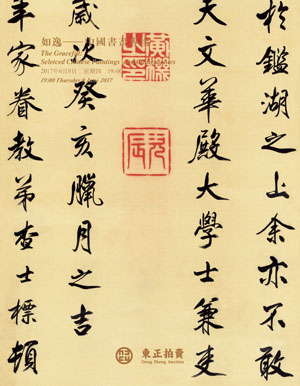 如逸——中國書畫
The Graceful
Seletced Chinese Paintings
2017年6月8日 星期四 19:00
19:00 Thursday 8 June 2017
於鑑湖之上余亦不敢
文華殿大學士兼吏
歲次癸亥臘月之吉
年家眷教弟查士標頓
黃機之印
東正拍賣
Dong Zheng Auction